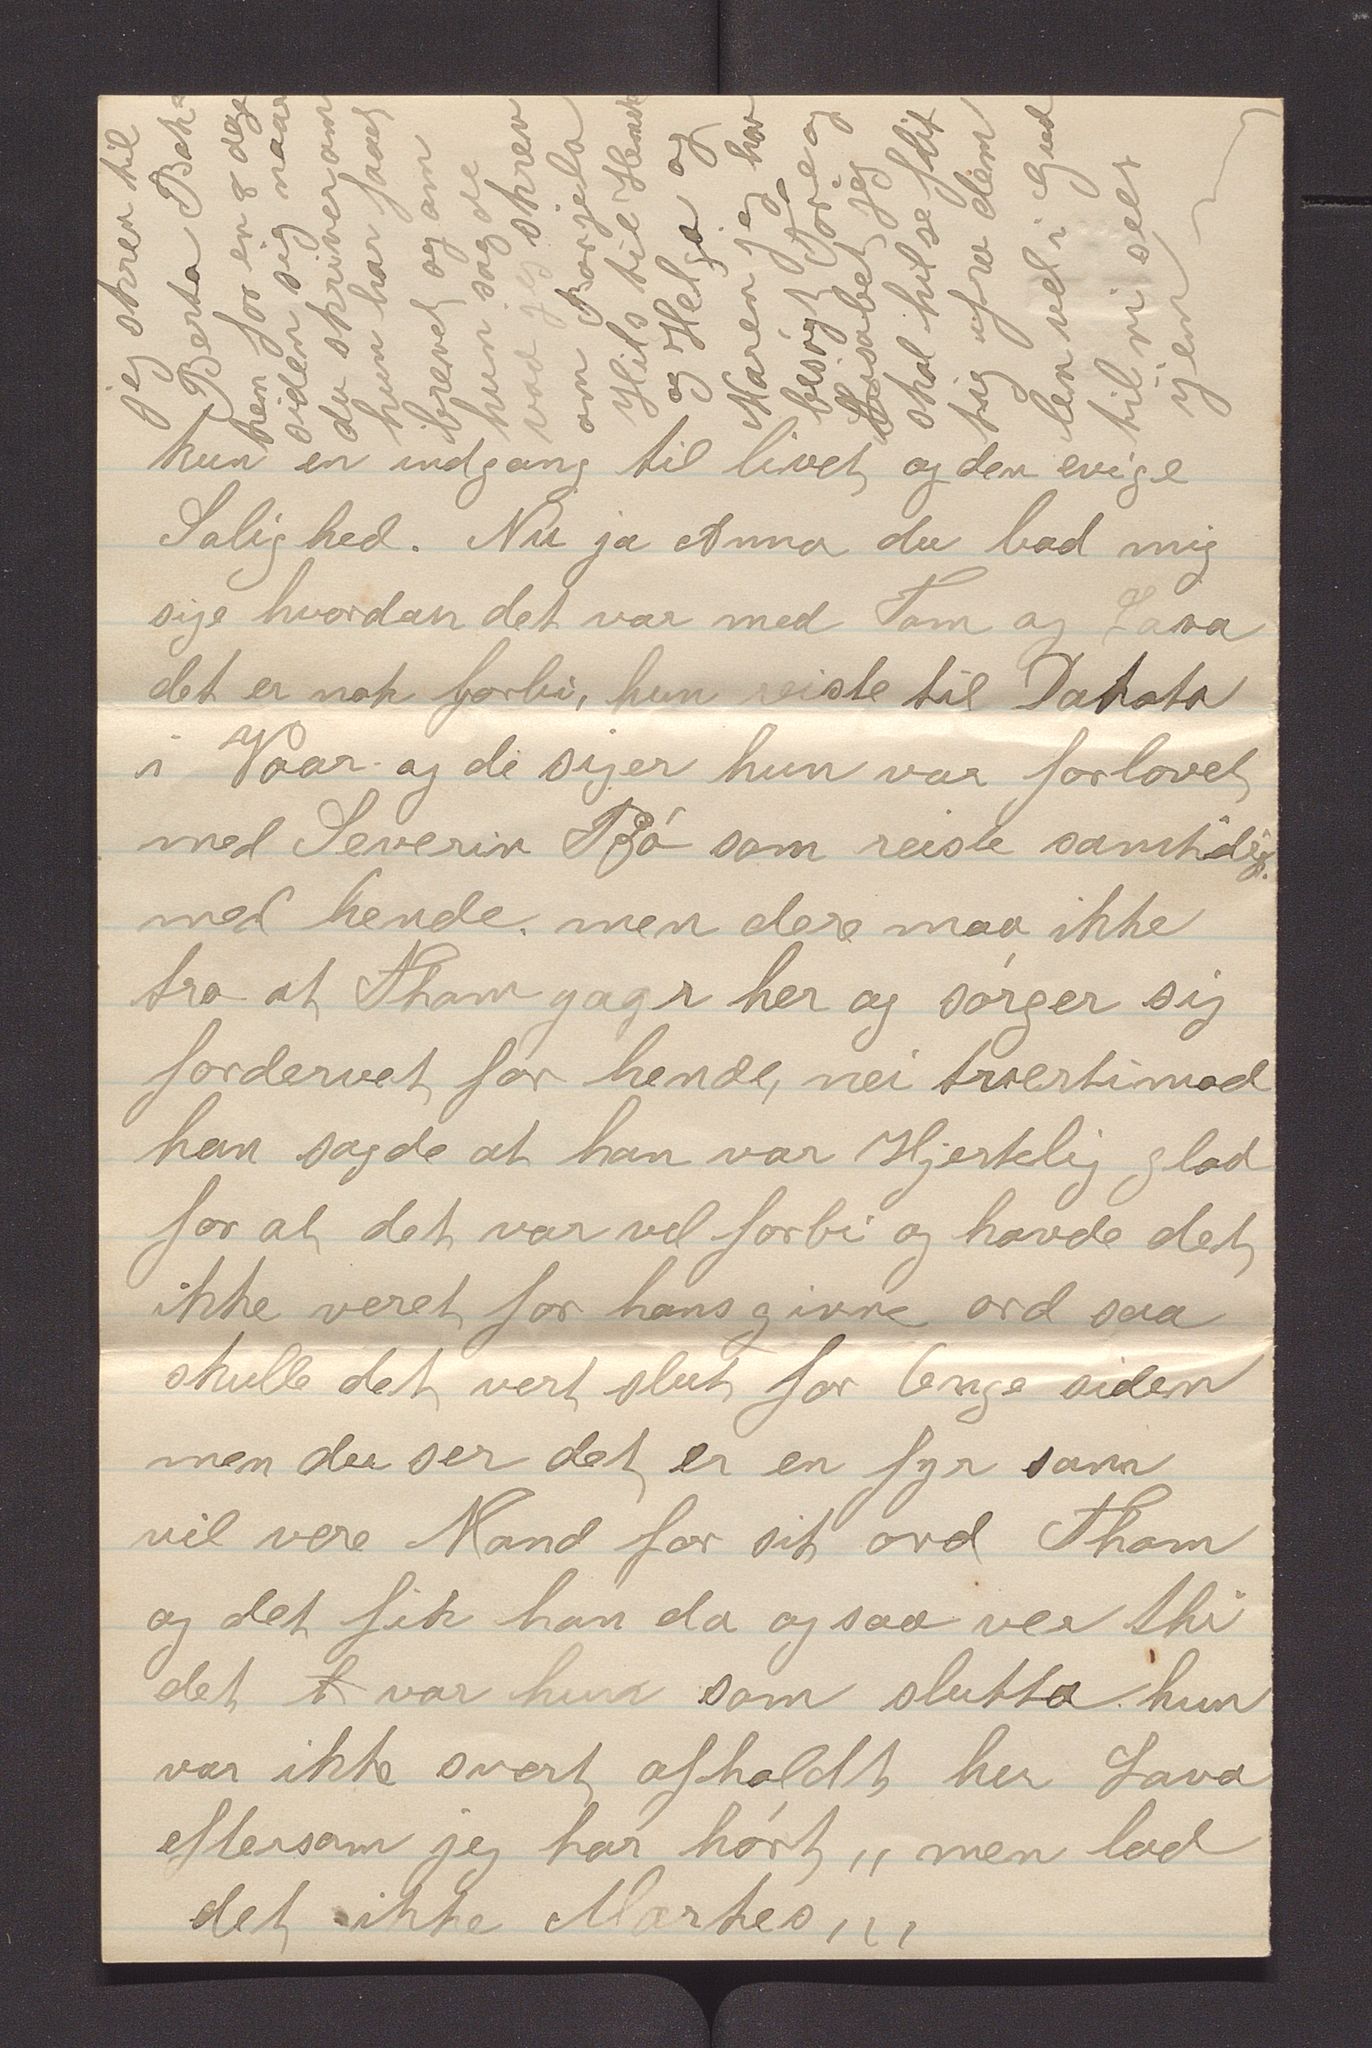 kun en indgang til livet og den evige
Salighed. Nu ja Anna du bad mig
sige hvordan det var med Tom og Lava
det er nok forbi, hun reiste til Dakota
i Vaar og de siger hun var forlovet
med Severin Bö som reiste samtidig
med hende. men dere maa ikke
tro at Thom gager her og sörger sig
fordervet for hende, nei tvertimod
han sagde at han var Hjertelig glad
for at det var vel forbi og havde det
ikke veret for hans givne ord saa
skulle det vert slut for lenge siden
men du ser det er en fyr som
vil vere Mand for sit ord Thom
og det fik han da ogsaa ver thi
det var hun som slutta. hun
var ikke svert afholdt her Lava
eftersom jeg har hört,, men lad
det ikke Markes,,,
jeg skrev til
Berta Bak
hen for en 8 dage
siden sig naar
du skriver om
hun har faaet
brevet og om
hun sagde
vad jeg skrev
om Borjela
Hils til Henrik
og Helga og
Maren jeg har
besögt Tore og
Lisabet jeg
skal hilse flit
tig ifra dem
lev vel i Gud
til vi sees
igjen